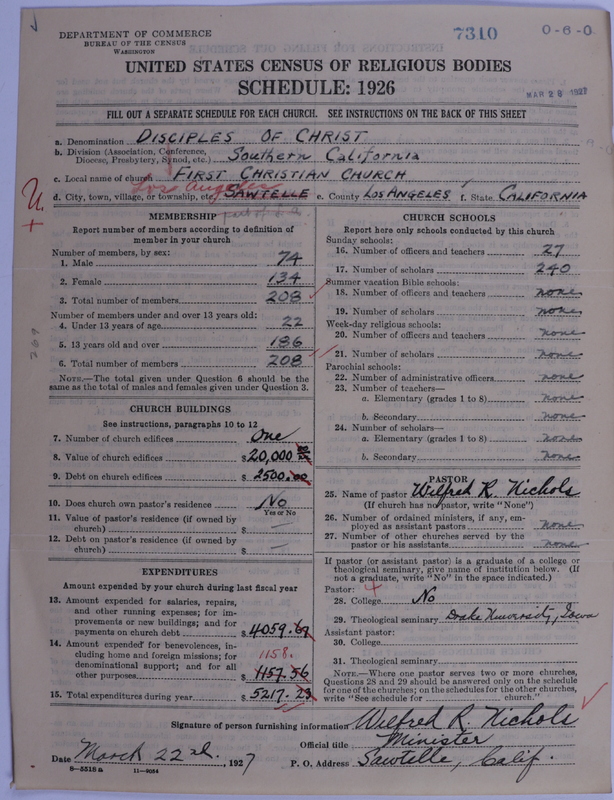 DEPARTMENT OF COMMERCE
BUREAU OF THE CENSUS
WASHINGTON
7310
0-6-0
UNITED STATES CENSUS OF RELIGIOUS BODIES
SCHEDULE: 1926
MAR 28 1927
FILL OUT A SEPARATE SCHEDULE FOR EACH CHURCH. SEE INSTRUCTIONS ON THE BACK OF THIS SHEET
a. Denomination DISCIPLES OF CHRIST
b. Division (Association, Conference, Diocese, Presbytery, Synod, etc.) Southern California
c. Local name of church FIRST CHRISTIAN CHURCH
Los Angeles
d. City, town, village, or township, etc. SAWTELLE e. County LOS ANGELES f. State CALIFORNIA
part of L.A.
MEMBERSHIP
Report number of members according to definition of
member in your church
Number of members, by sex:
1. Male 74
2. Female 134
3. Total number of members 208
Number of members under and over 13 years old:
4. Under 13 years of age 22
5. 13 years old and over 186
6. Total number of members 208
NOTE.—The total given under Question 6 should be the
same as the total of males and females given under Question 3.
CHURCH BUILDINGS
See instructions, paragraphs 10 to 12
7. Number of church edifices One
8. Value of church edifices $20,000
9. Debt on church edifices $2500.00
10. Does church own pastor's residence No
Yes or No
11. Value of pastor's residence (if owned by
church) $ —
12. Debt on pastor's residence (if owned by
church) $ —
EXPENDITURES
Amount expended by your church during last fiscal year
13. Amount expended for salaries, repairs,
and other running expenses; for im-
provements or new buildings; and for
payments on church debt $4059.67
14. Amount expended for benevolences, in-
cluding home and foreign missions; for
denominational support; and for all
other purposes $1157.56
1158.
15. Total expenditures during year $5217.23
CHURCH SCHOOLS
Report here only schools conducted by this church
Sunday schools:
16. Number of officers and teachers 27
17. Number of scholars 240
Summer vacation Bible schools:
18. Number of officers and teachers none
19. Number of scholars none
Week-day religious schools:
20. Number of officers and teachers none
21. Number of scholars none
Parochial schools:
22. Number of administrative officers none
23. Number of teachers—
a. Elementary (grades 1 to 8) none
b. Secondary none
24. Number of scholars—
a. Elementary (grades 1 to 8) none
b. Secondary none
PASTOR
25. Name of pastor Wilfred R. Nichols
(If church has no pastor, write "None")
26. Number of ordained ministers, if any, em-
ployed as assistant pastors none
27. Number of other churches served by the
pastor or his assistants none
If pastor (or assistant pastor) is a graduate of a college or
theological seminary, give name of institution below. (If
not a graduate, write "No" in the space indicated.)
Pastor:
28. College No
29. Theological seminary Drake University, Iowa
Assistant pastor:
30. College
31. Theological seminary
NOTE.—Where one pastor serves two or more churches,
Questions 28 and 29 should be answered only on the schedule
for one of the churches; on the schedules for the other churches,
write "See schedule for church."
Signature of person furnishing information Wilfred R. Nichols
Official title Minister
Date March 22nd, 1927 P. O. Address Sawtelle, Calif.
8—5518a 11—9054